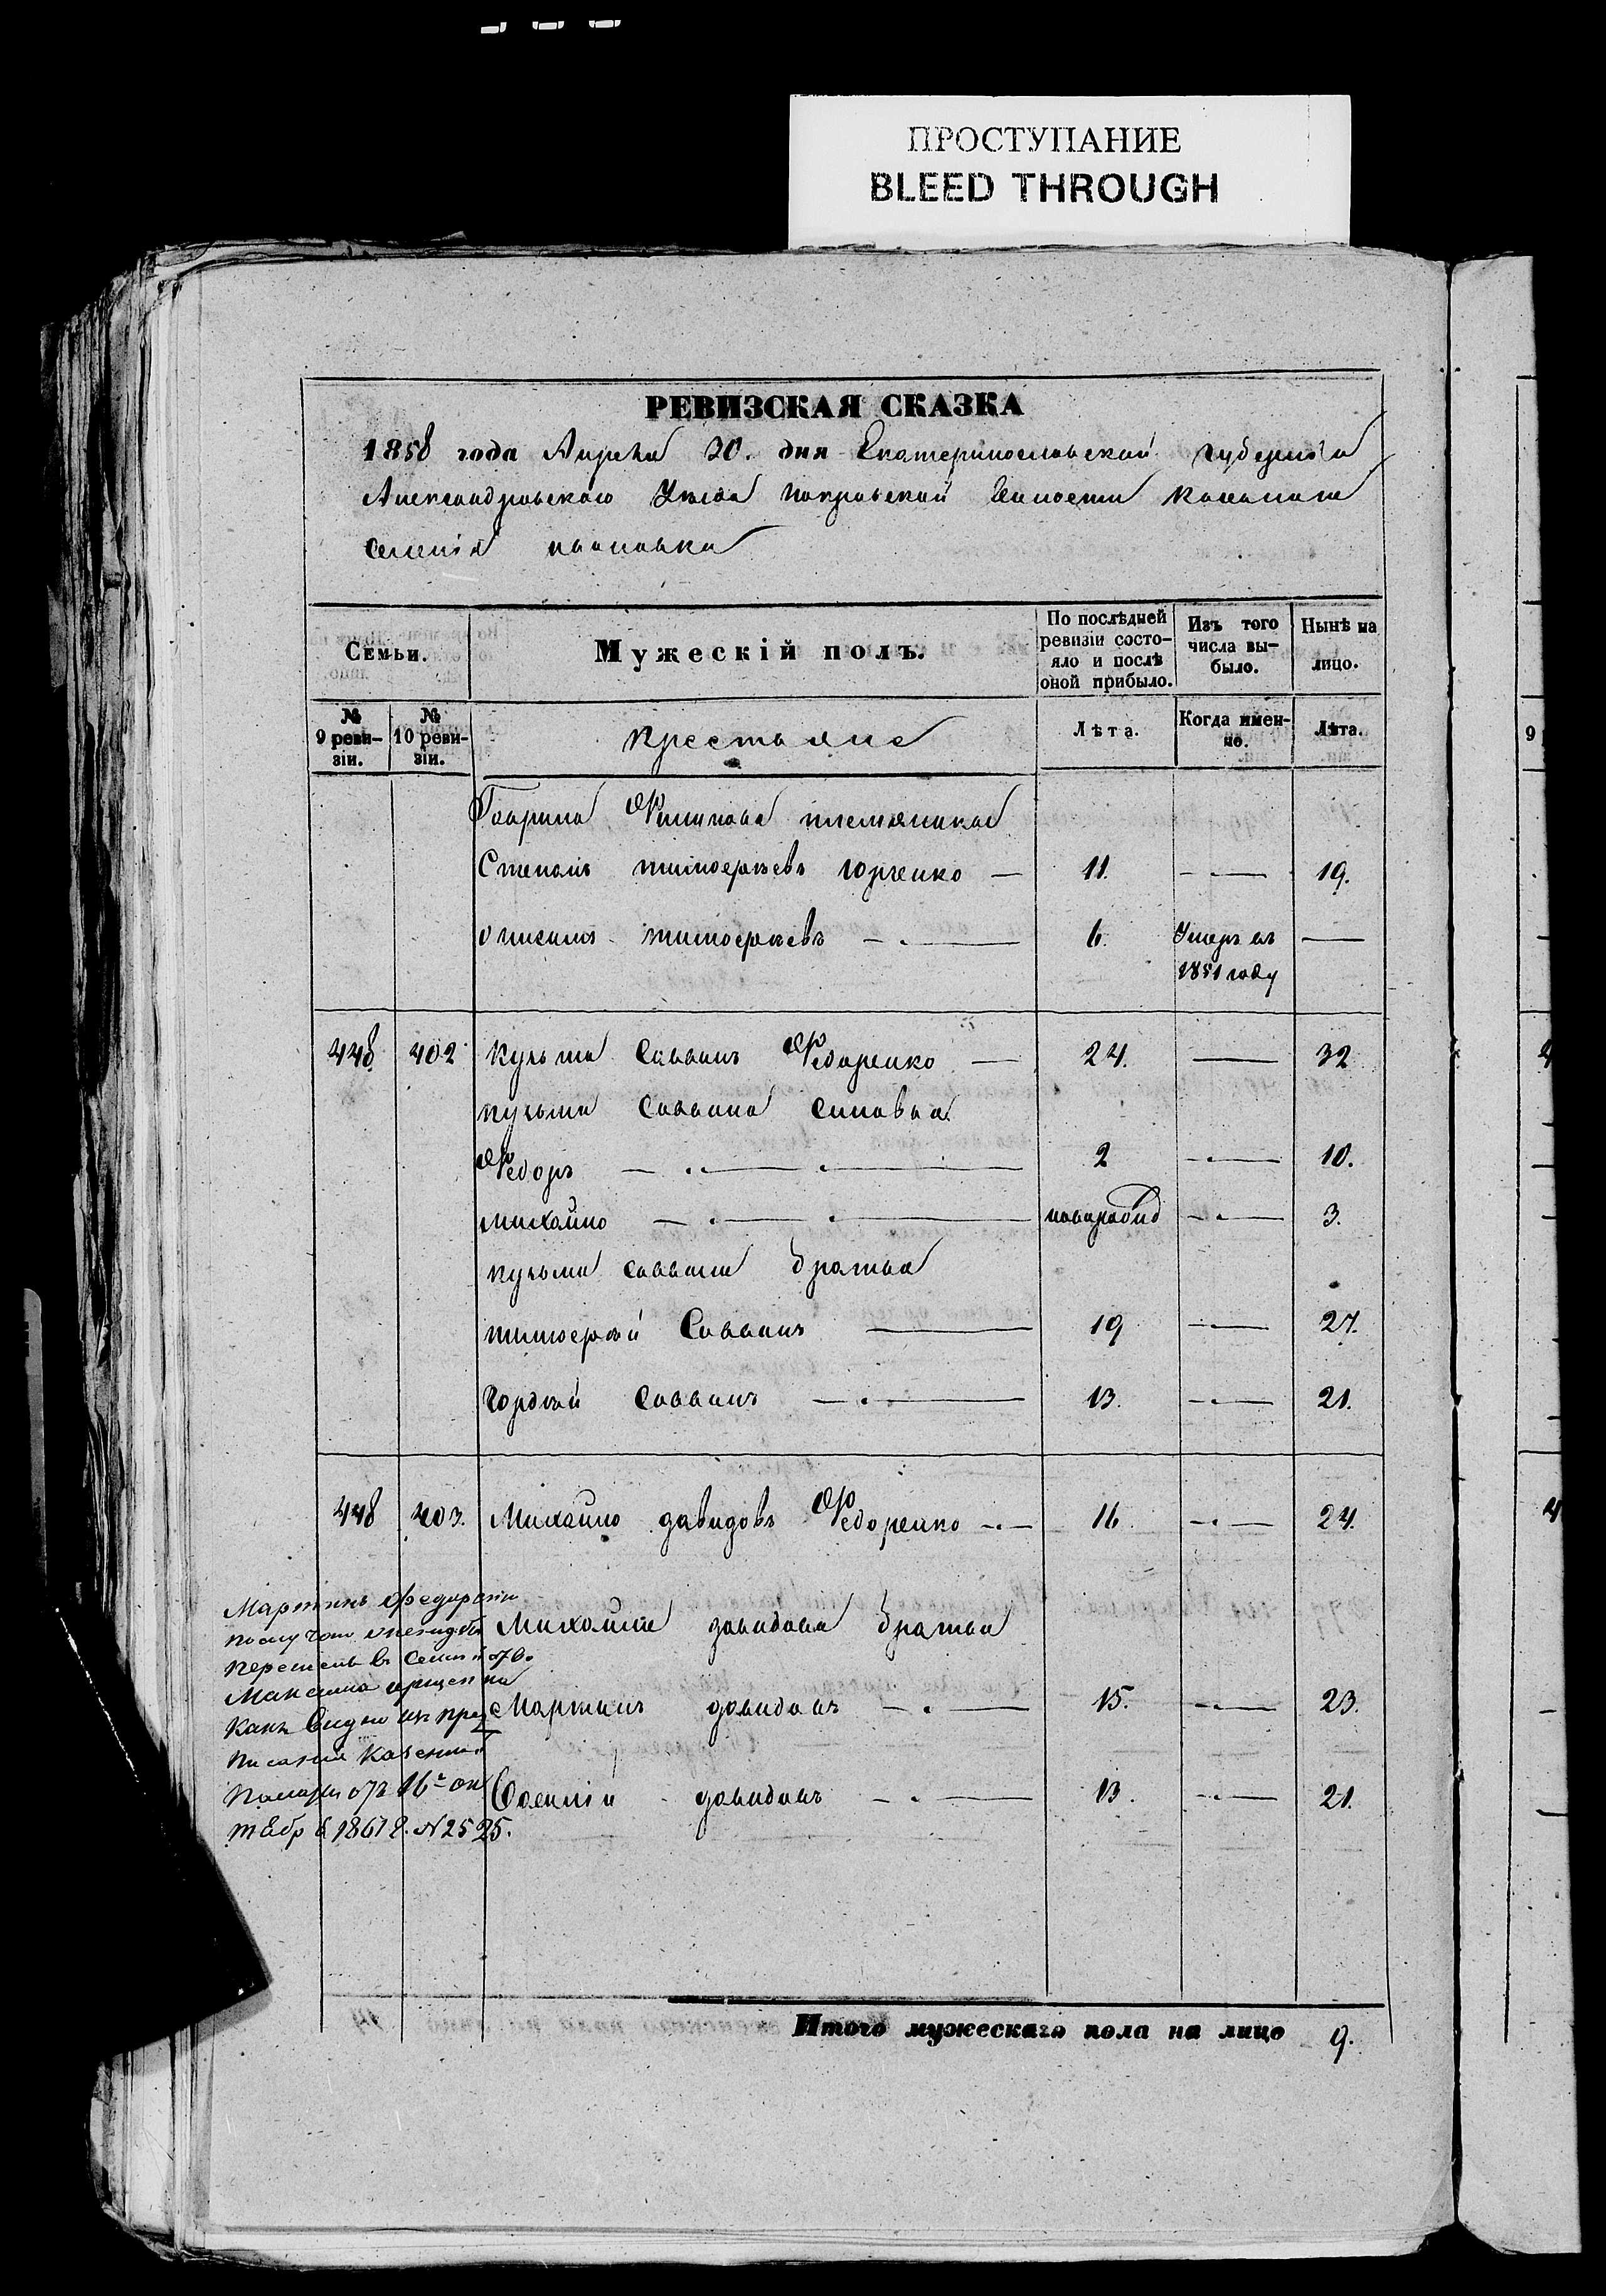 ПРОСТУПАНИЕ
BLEED THROUGH
РЕВИЗСКАЯ СКАЗКА
1858 года Апрѣля 20. дня Екатеринославской губерніи
Александровскаго Уѣзда покровской Волости
Селенія
Семьи.
Мужескій полъ.
По послѣдней ревизіи состо-
яло и послѣ
оной прибыло.
Изъ того
числа вы-
было.
Нынѣ на
лицо.
№
9 реви-
зіи.
№
10 реви-
зіи.
крестьяне
Лѣта.
Когда имен-
но.
Лѣта.
9
Гаврила Филипова племяники
Степанъ тимофѣевъ Юрченко — 11. — 19.
тимофѣевъ — 6. Умеръ въ —
1851 году
448 402 кузьма Саввинъ Федоренко — 24. — 32
кузьми Саввина Синовья
Федоръ — 2 — 10.
михайло — новорожд — 3.
кузьми саввина братья
тимофѣй Саввинъ — 19 — 27.
Гордѣй Саввинъ — 13. — 21.
448 403. Михайло давидовъ Федоренко — 16. — 24.
Михайли давидова братья
Мартинъ давидовъ — 15. — 23.
Василій давидовъ — 13. — 21.
Мартинъ
перешелъ в
Максима
Какъ Видно изъ пред
писания Казенной
Палаты отъ 16го ок
тября 1861 г. N 2525.
Итого мужескаго пола на лицо 9.